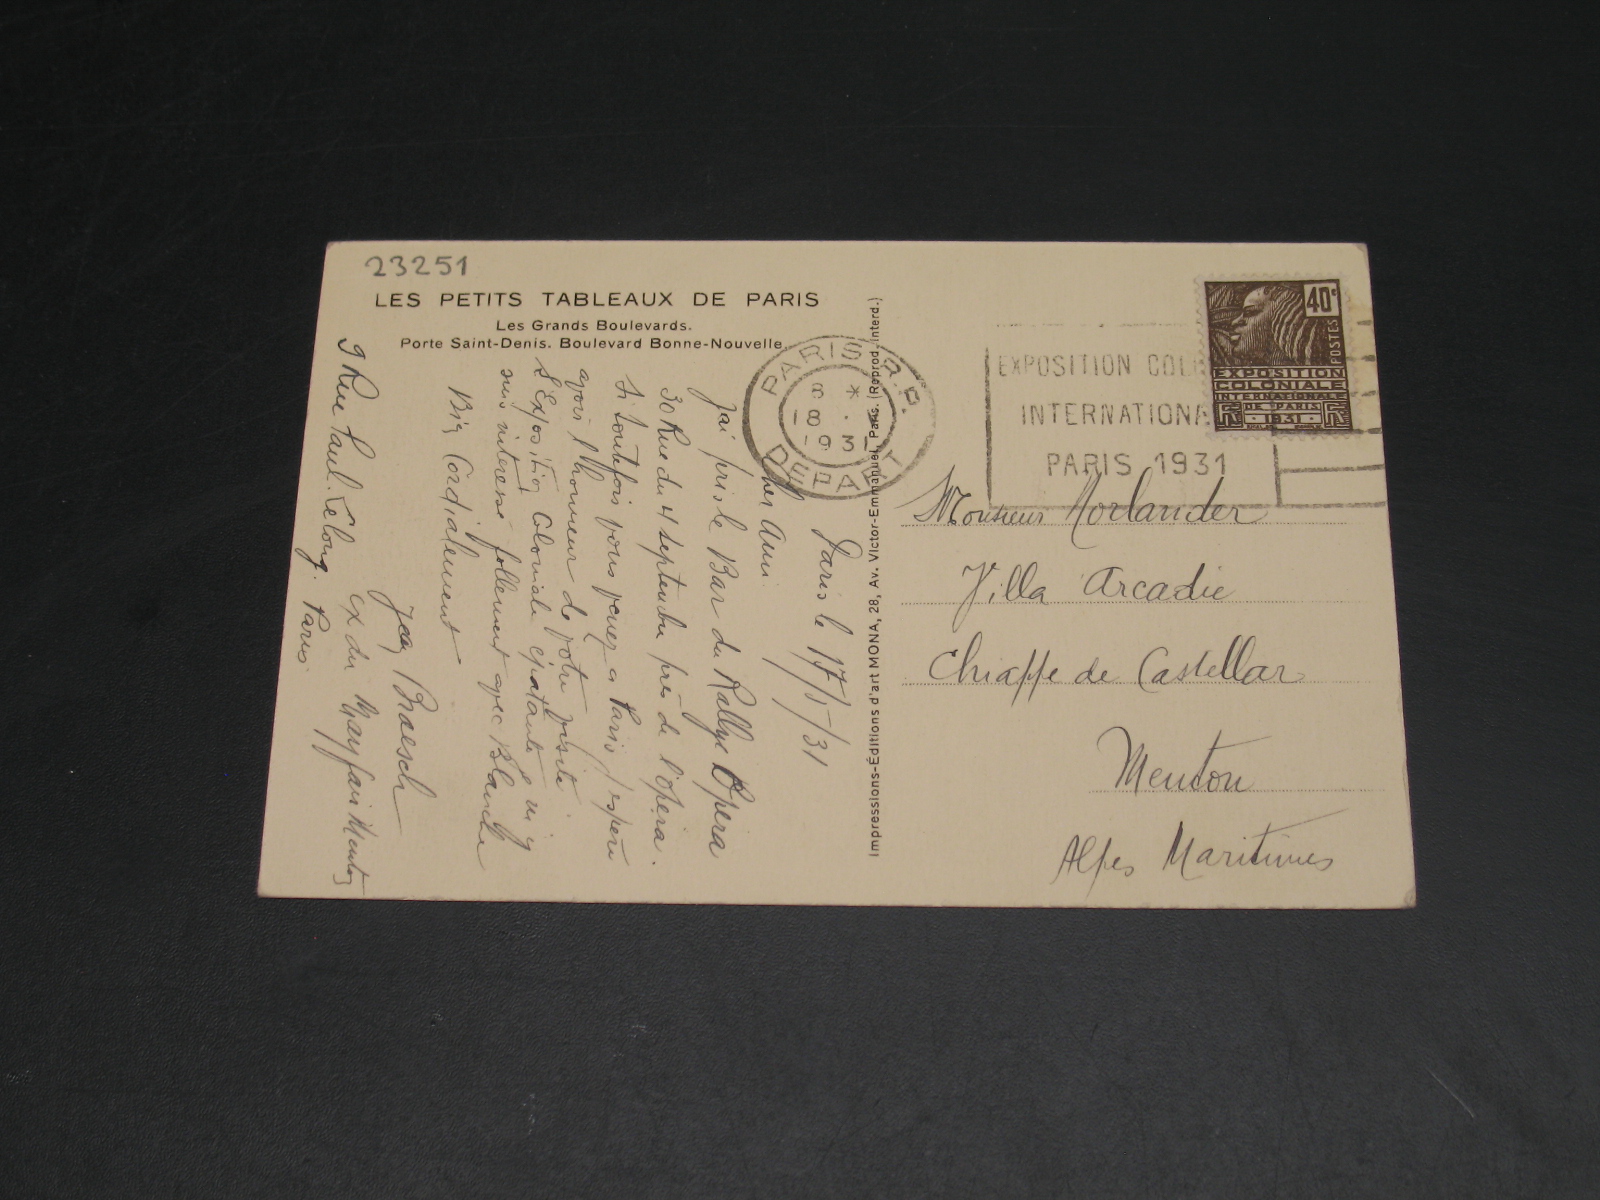 23251
LES PETITS TABLEAUX DE PARIS
Les Grands Boulevards.
Porte Saint-Denis. Boulevard Bonne-Nouvelle
Paris le 17/5/31
Cher Ami
J'ai pris le Bar du Rallye Opera
30 Rue du 4 septembre près de l'opéra.
Si toutefois vous venez a Paris j'espère
avoir l'honneur de votre visite
L'Exposition Coloniale épatante
suis interessé follement avec Blanche
Bien Cordialement
Jean Braesch
ex du Mayfair Menton
9 Rue Paul. Lelong. Paris
Impressions-Éditions d'art MONA, 28, Av. Victor-Emmanuel, Paris. (Reprod. interd.)
PARIS R.P.
8 *
18
1931
DEPART
EXPOSITION COL
INTERNATIONA
PARIS 1931
40c
POSTES
EXPOSITION
COLONIALE
INTERNATIONALE
DE PARIS
1931
RF RF
Monsieur Norlander
Villa Arcadie
Chiappe de Castellar
Menton
Alpes Maritimes